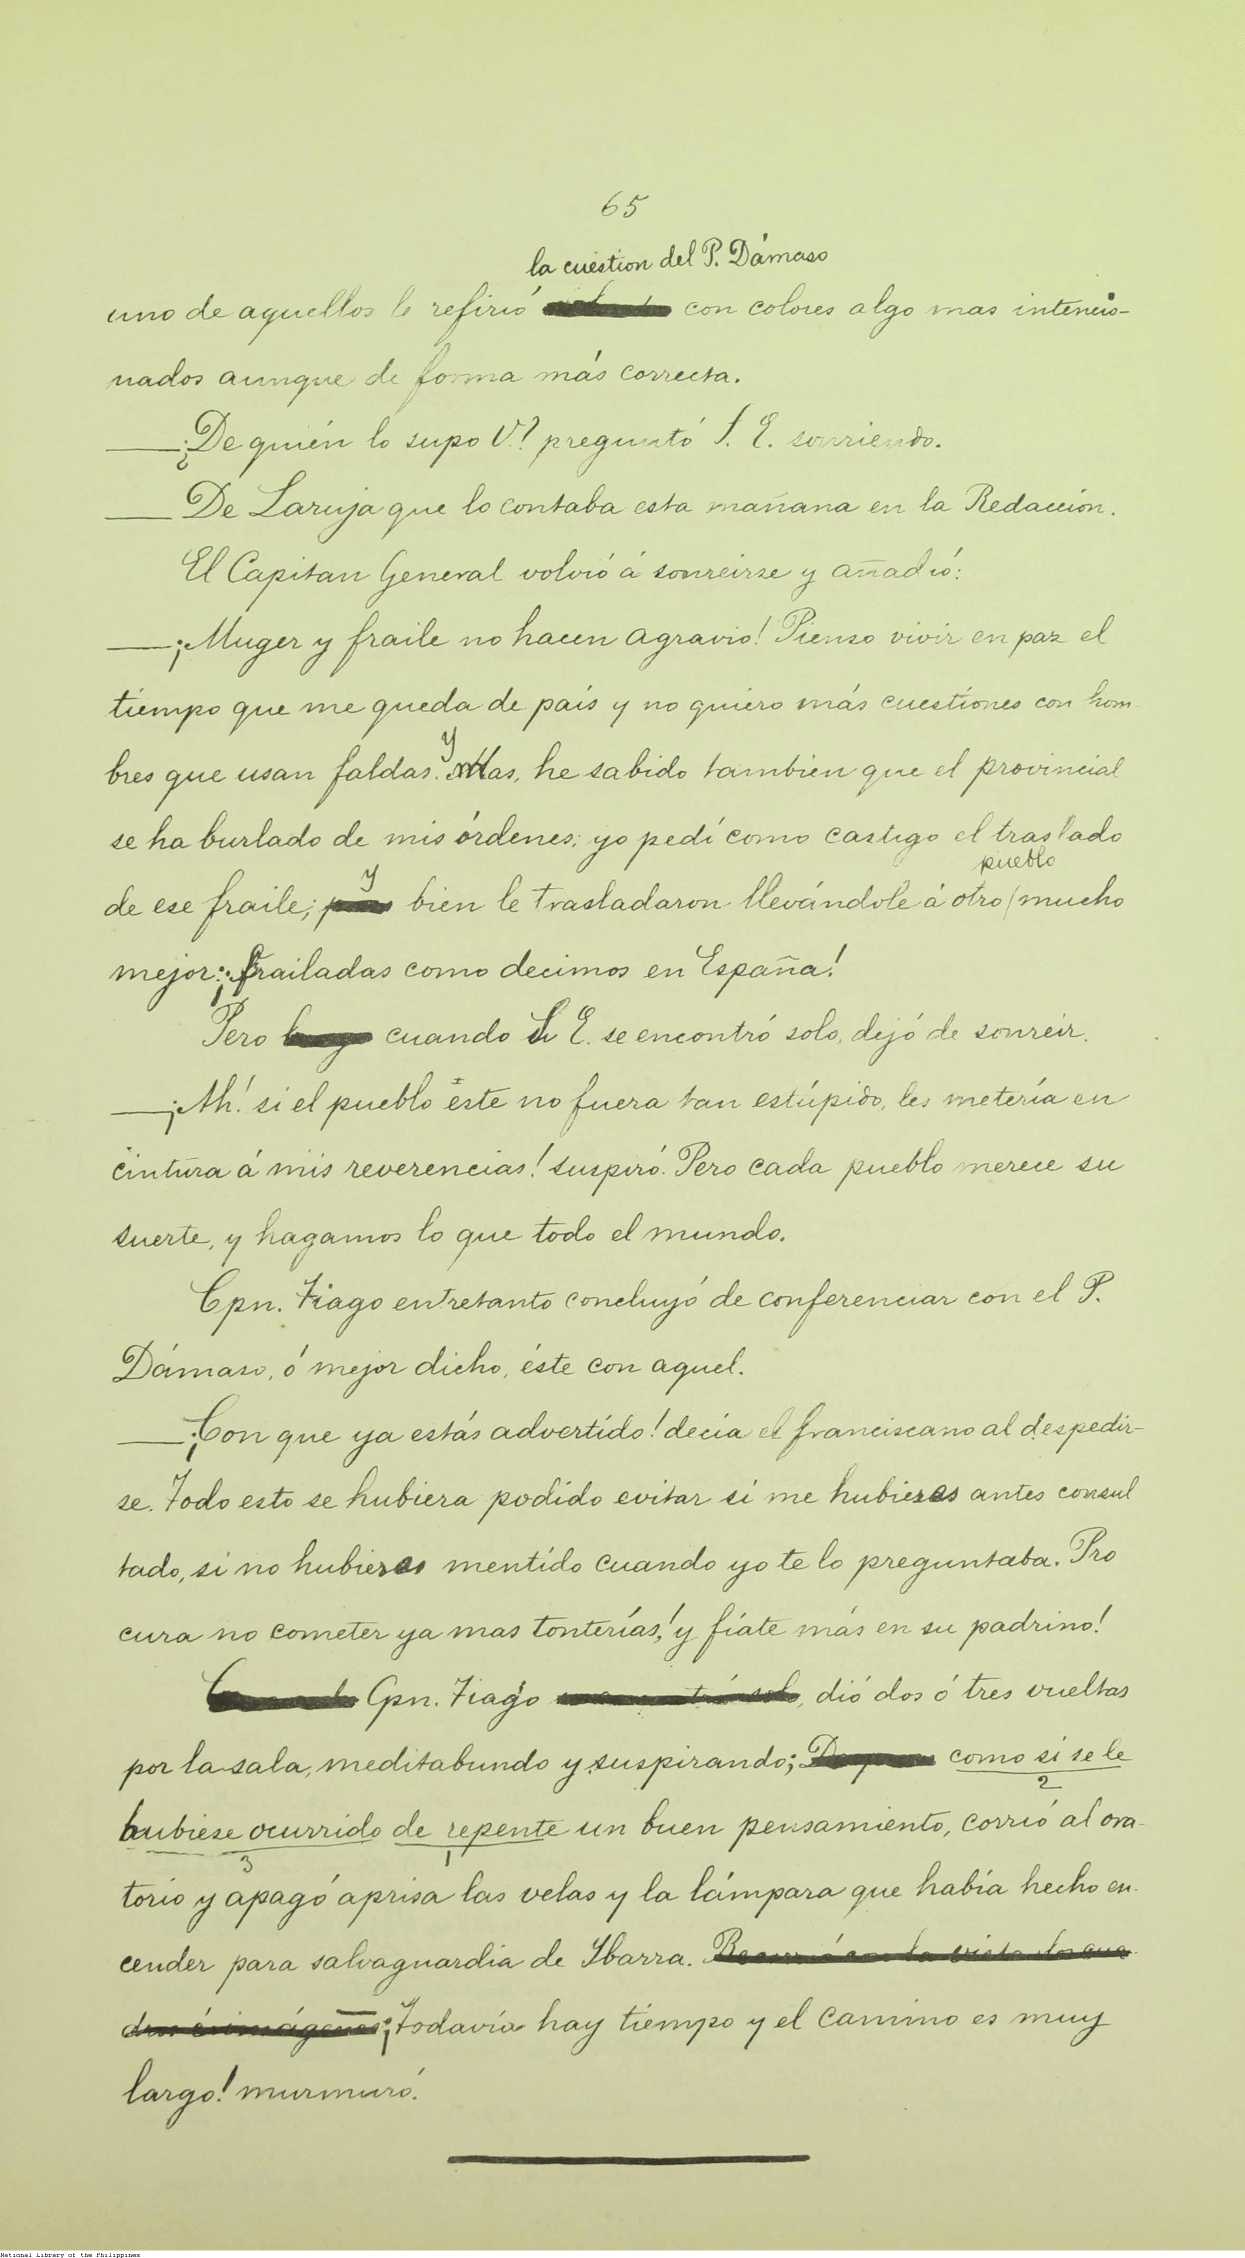 65
la cuestion del P. Dámaso
uno de aquellos le refirió con colores algo mas intencio-
nados aunque de forma más correcta.
—¿De quién lo supo V.? preguntó S. E. sonriendo.
— De Laruja que lo contaba esta mañana en la Redaccion.
El Capitan General volvió á sonreirse y añadió:
—¡Muger y fraile no hacen agravio! Pienso vivir en paz el
tiempo que me queda de país y no quiero más cuestiones con hom-
y
bres que usan faldas. Mas, he sabido tambien que el provincial
se ha burlado de mis órdenes; yo pedí como castigo el traslado
pueblo
y
de ese fraile; pues bien le trasladaron llevándole á otro / mucho
mejor: ¡frailadas como decimos en España!
Pero luego cuando S. E. se encontró solo, dejó de sonreir.
—¡Ah! si el pueblo este no fuera tan estúpido, les metería en
cintura á mis reverencias! suspiró. Pero cada pueblo merece su
suerte, y hagamos lo que todo el mundo.
Cpn. Tiago entretanto concluyó de conferenciar con el P.
Dámaso, ó mejor dicho, éste con aquel.
—¡Con que ya estás advertido! decia el franciscano al despedir-
se. Todo esto se hubiera podido evitar si me hubieses antes consul
tado, si no hubieses mentido cuando yo te lo preguntaba. Pro
cura no cometer ya mas tonterías,! y fíate más en su padrino!
Cpn. Tiago se encontró solo, dió dos ó tres vueltas
por la sala, meditabundo y suspirando; como si se le
2
hubiese ocurrido de repente un buen pensamiento, corrió al ora-
3 1
torio y apagó aprisa las velas y la lámpara que había hecho en-
cender para salvaguardia de Ybarra. Recorrió con la vista los cua
dros é imágenes ¡Todavía hay tiempo y el camino es muy
largo! murmuró.
National Library of the Philippines